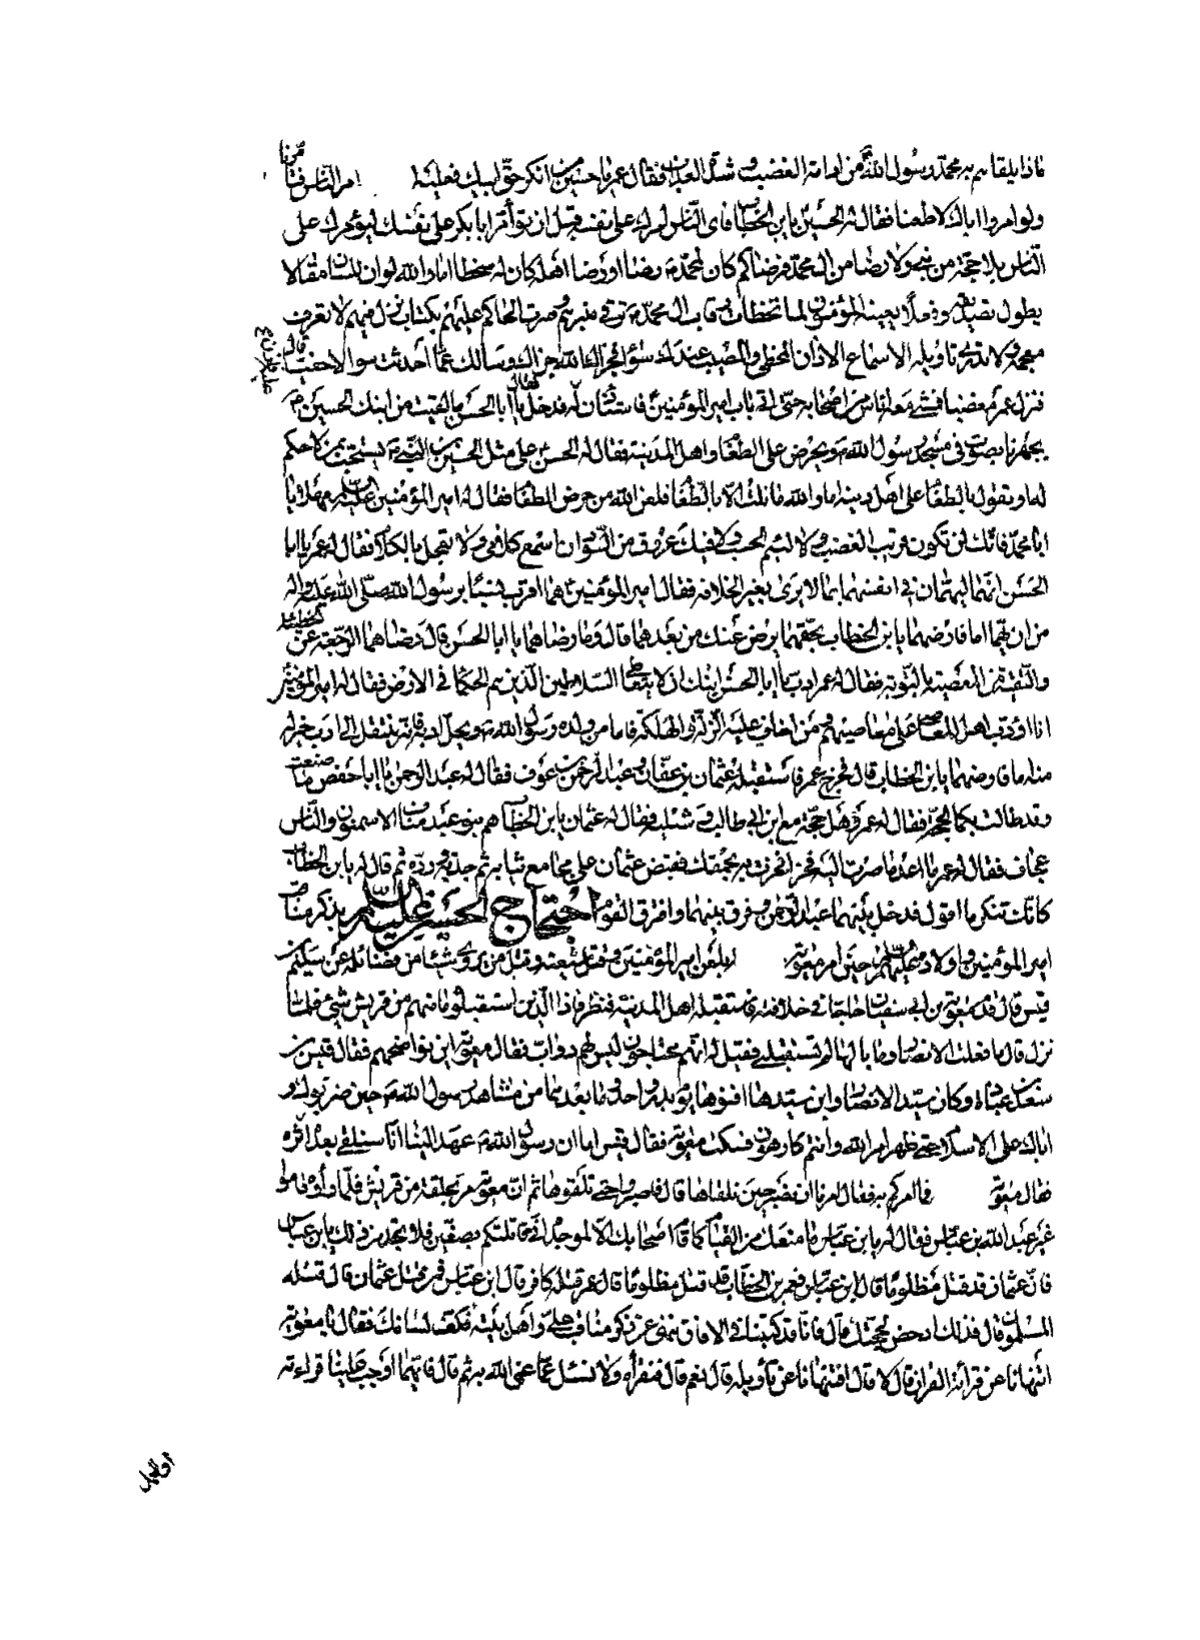 ماذا يلقاهم به محمد رسول الله ص من ادامة الغضب وشدة العذاب فقال عمر يا حسين من انكر حق ابيك فعليه امرنا الناس فتأمرنا
ولو امروا اباك لاطعنا فقال له الحسين يا بن الخطاب فاى الناس امرك على نفسه قبل ان تؤمر ابا بكر على نفسك ليؤمرك على
الناس بلا حجة من نبى ولا رضا من ال محمد فرضاكم كان لمحمد ص رضا او رضا اهله كان له سخطا اما والله لو ان للسان مقالا
يطول تصديقه وفعلا يعينه المؤمنون لما تخطأت رقاب ال محمد ص ترقى منبرهم وصرت الحاكم عليهم بكتاب نزل فيهم لا تعرف
معجمه ولا تدرى تاويله الا سماع الاذان المخطى والمصيب عندك سواء فجزاك الله جزاك وسالك عما احدثت سوالا حفيا قال
فنزل عمر مغضبا فمشى معه اناس من اصحابه حتى اتى باب امير المؤمنين ع فاستاذن له فدخل فقال يا ابا الحسن ما لقيت من ابنك الحسين ع
يجهرنا بصوت فى مسجد رسول الله ص ويحرض على الطغام واهل المدينة فقال له الحسن على مثل الحسين ابن النبى ص يستحث بمن لا حكم
له او يقول بالطغام على اهل دينه اما والله ما نلت الا بالطغام فلعن الله من حرض الطغام فقال له امير المؤمنين عليه السلام مهلا يا
ابا محمد فانك لن تكون قريب الغضب ولا لئيم الحسب ولا فيك عروق من السودان اسمع كلامى ولا تعجل بالكلام فقال له عمر يا ابا
الحسن انهما ليهمان فى انفسهما بما لا يرى بغير الخلافة فقال امير المؤمنين ع هما اقرب نسبا برسول الله صلى الله عليه واله
من ان يهما اما فارضهما يا بن الخطاب بحقهما يرض عنك من بعدهما قال وما رضاهما يا ابا الحسن قال رضاهما الرجعة عن الخطيئة
والتقية من المعصية بالتوبة فقال له عمر ادب يا ابا الحسن ابنك ان لا يتعاطى السلاطين الذين هم الحكماء فى الارض فقال له امير المؤمنين ع
انا اؤدب اهل المعاصى على معاصيهم ومن اخاف عليه الزلة والهلكة فاما من ولده رسول الله ص ويحل ادبه فانه ينتقل الى ادب خير له
منه اما فارضهما يا بن الخطاب قال فخرج عمر فاستقبله عثمان بن عفان وعبد الرحمن بن عوف فقال له عبد الرحمن يا ابا حفص ما صنعت
وقد طالت بكما الحجة فقال له عمر وهل حجة مع ابن ابى طالب وشبليه فقال له عثمان يا بن الخطاب هم بنو عبد مناف الاسمنون والناس
عجاف فقال له عمر ما اعد ما صرت اليه فخرا فخرت به بحمقك فقبض عثمان على مجامع ثيابه ثم جذبه ورده ثم قال له يا بن الخطاب
كانك تنكر ما اقول فدخل بينهما عبد الرحمن وفرق بينهما وافترق القوم احتجاج الحسين عليه السلام بذكر مناقب
امير المؤمنين واولاده عليهم السلام حين امر معوية بلعن امير المؤمنين ع وقتل شيعته وقتل من يروى شيئا من فضائله عن سليم بن
قيس قال قدم معوية بن ابى سفيان حاجا فى خلافته فاستقبله اهل المدينة فنظر فاذا الذين استقبلوه ما منهم من قريش شئ فلما
نزل قال ما فعلت الانصار وما بالها لم تستقبلنى فقيل له انهم محتاجون ليس لهم دواب فقال معوية واين نواضحهم فقال قيس بن
سعد بن عبادة وكان سيد الانصار وابن سيدها افنوها يوم بدر واحد وما بعدهما من مشاهد رسول الله ص حين ضربوك و
اباك على الاسلام حتى ظهر امر الله وانتم كارهون فسكت معوية فقال قيس اما ان رسول الله ص عهد الينا انا سنلقى بعده اثرة
فقال معوية فما امركم به فقال امرنا ان نصبر حتى نلقاه قال فاصبروا حتى تلقوه ثم ان معوية مر بحلقة من قريش فلما راوه قاموا
غير عبد الله بن عباس فقال له يا بن عباس ما منعك من القيام كما قام اصحابك الا لموجدة انى قاتلتكم بصفين فلا تجد من ذلك يا بن عباس
فان عثمان قد قتل مظلوما قال ابن عباس فعمر بن الخطاب قد قتل مظلوما قال عمر قتله كافر قال ابن عباس فمن قتل عثمان قال قتله
المسلمون قال فذلك ادحض لحجتك قال فانا قد كتبنا فى الافاق ننهى عن ذكر مناقب على واهل بيته فكف لسانك فقال يا معوية
اتنهانا عن قرائة القران قال لا قال افتنهانا عن تأويله قال نعم قال فنقرأه ولا نسئل عما عنى الله به ثم قال فايهما اوجب علينا قراءته